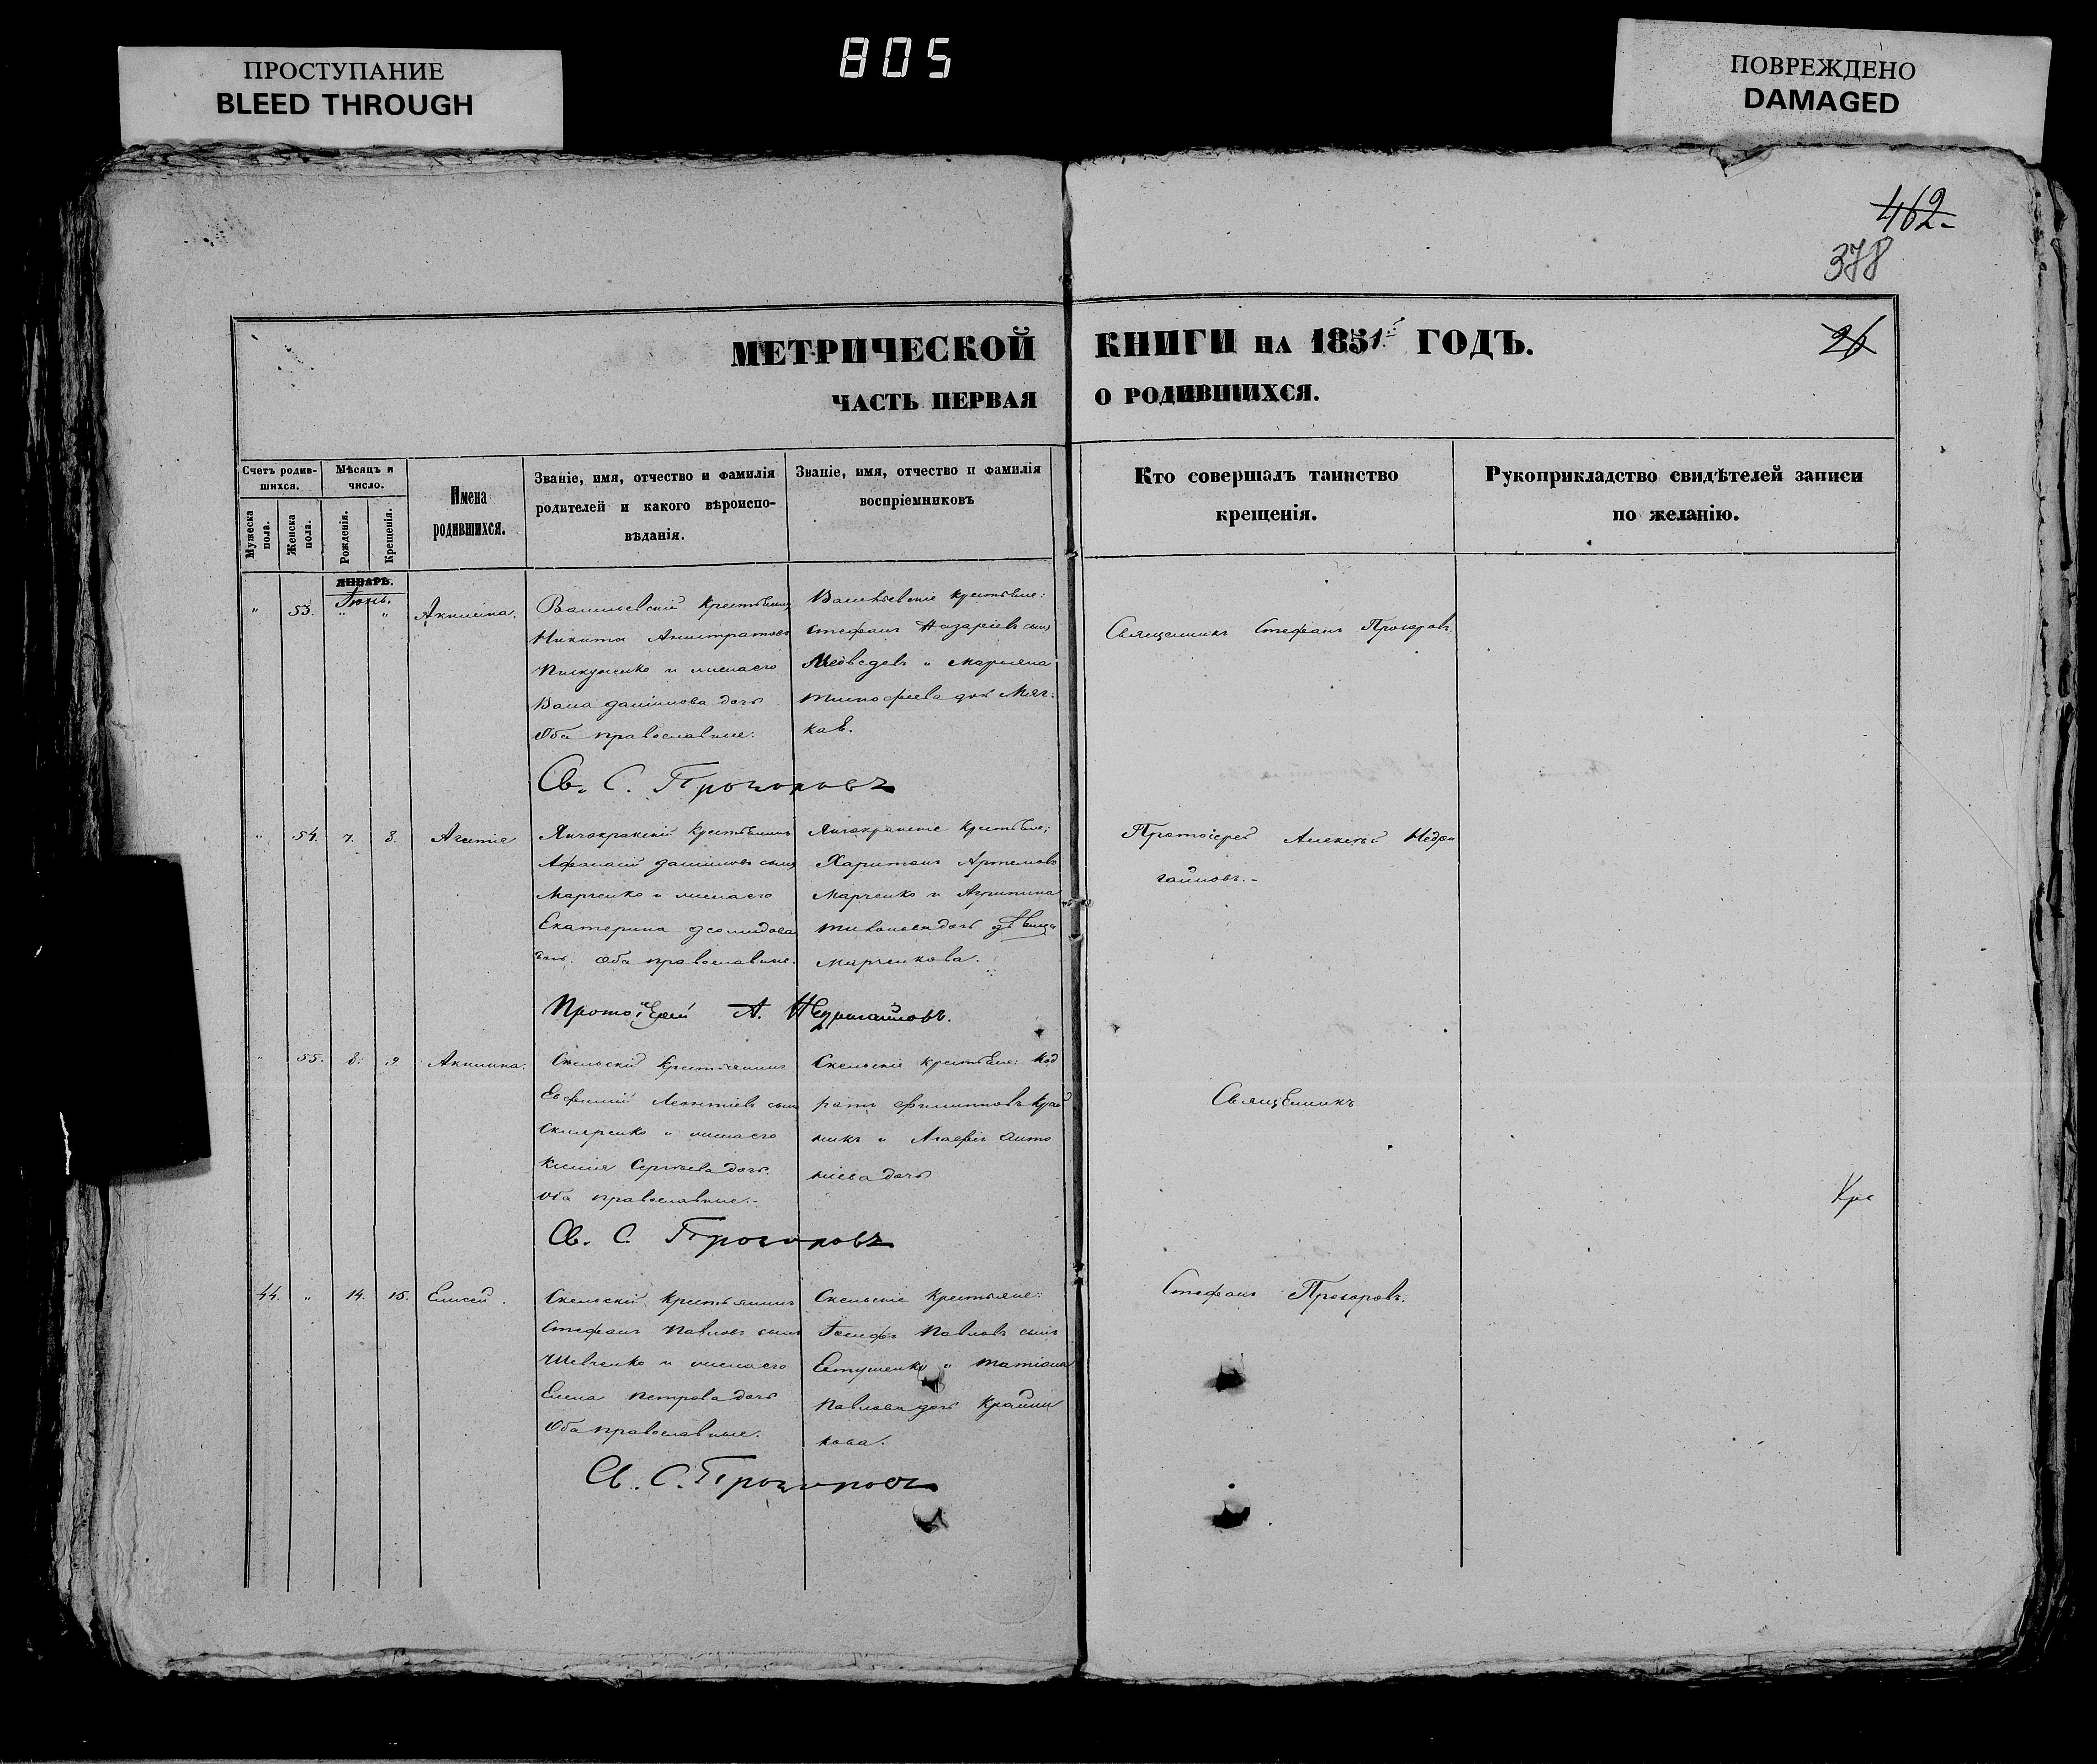 805
ПРОСТУПАНИЕ
BLEED THROUGH
ПОВРЕЖДЕНО
DAMAGED
462
378
26
МЕТРИЧЕСКОЙ КНИГИ НА 1851 ГОДЪ.
ЧАСТЬ ПЕРВАЯ О РОДИВШИХСЯ.
Счетъ родив-
шихся.
Мужеска
пола.
Женска
пола.
Мѣсяцъ и
число.
Рожденія.
Крещенія.
Имена
родившихся.
Званіе, имя, отчество и фамилія
родителей и какого вѣроиспо-
вѣданія.
Званіе, имя, отчество и фамилія
воспріемниковъ
Кто совершалъ таинство
крещенія.
Рукоприкладство свидѣтелей записи
по желанію.
ЯНВАРЬ.
Іюнь.
" 53. " " Акилина.
Васильевскій крестьянинъ
Никита
и жена его
дочь
Оба православные.
Васильевскіе крестьяне:
Стефанъ Назаріевъ сынъ
Медведевъ и Марьяна
Тимофеева дочь
Священникъ Стефанъ Прохоровъ.
Св. С. Прохоровъ
" 54. 7. 8. Агапія
крестьянинъ
Афанасій Даниловъ сынъ
Марченко и жена его
Екатерина
дочь. Оба православные.
крестьяне;
Харитонъ Артемовъ
Марченко и Агрипина
дочь девица
Марченкова.
Протоіерей Алексѣй
Протоіерей А.
" 55. 8. 9 Акилина.
Скельскій крестьянинъ
Евфимій Леонтіевъ сынъ
Скляренко и жена его
Ксенія Сергѣева дочь.
Оба православные.
Скельскіе крестьяне: Код
ратъ Филипповъ Край
никъ и Агафія Анто
ніева дочь
Священникъ
Кре
Св. С. Прохоровъ
44. " 14. 15. Елисей.
Скельскій крестьянинъ
Стефанъ Павловъ сынъ
Шевченко и жена его
Елена Петрова дочь
Оба православные.
Скельскіе крестьяне:
Іосифъ Павловъ сынъ
Евтушенко и Татіана
Павлова дочь Крайни
кова.
Стефанъ Прохоровъ.
Св. С. Прохоровъ